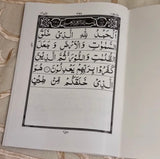 اَلْحَمْدُ لِلّٰهِ الَّذِيْ خَلَقَ
السَّمٰوٰتِ وَالْاَرْضَ وَجَعَلَ
الظُّلُمٰتِ وَالنُّوْرَ ثُمَّ الَّذِيْنَ
كَفَرُوْا بِرَبِّهِمْ يَعْدِلُوْنَ هُوَ
الَّذِيْ خَلَقَكُمْ مِّنْ طِيْنٍ